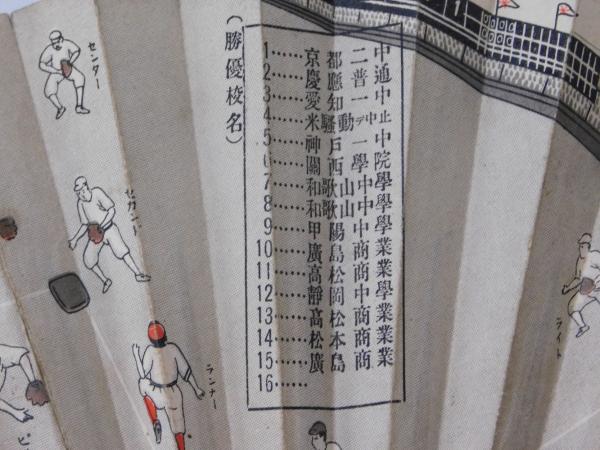 （勝優校名）
1……京都二中
2……慶應普通
3……愛知一中
4……米騷動デ中止
5……神戸一中
6……關西學院
7……和歌山中學
8……和歌山中學
9……甲陽中學
10……廣島商業
11……高松商業
12……靜岡中學
13……高松商業
14……松本商業
15……廣島商業
16……
センター
セカンド
ランナー
ライト
ピ